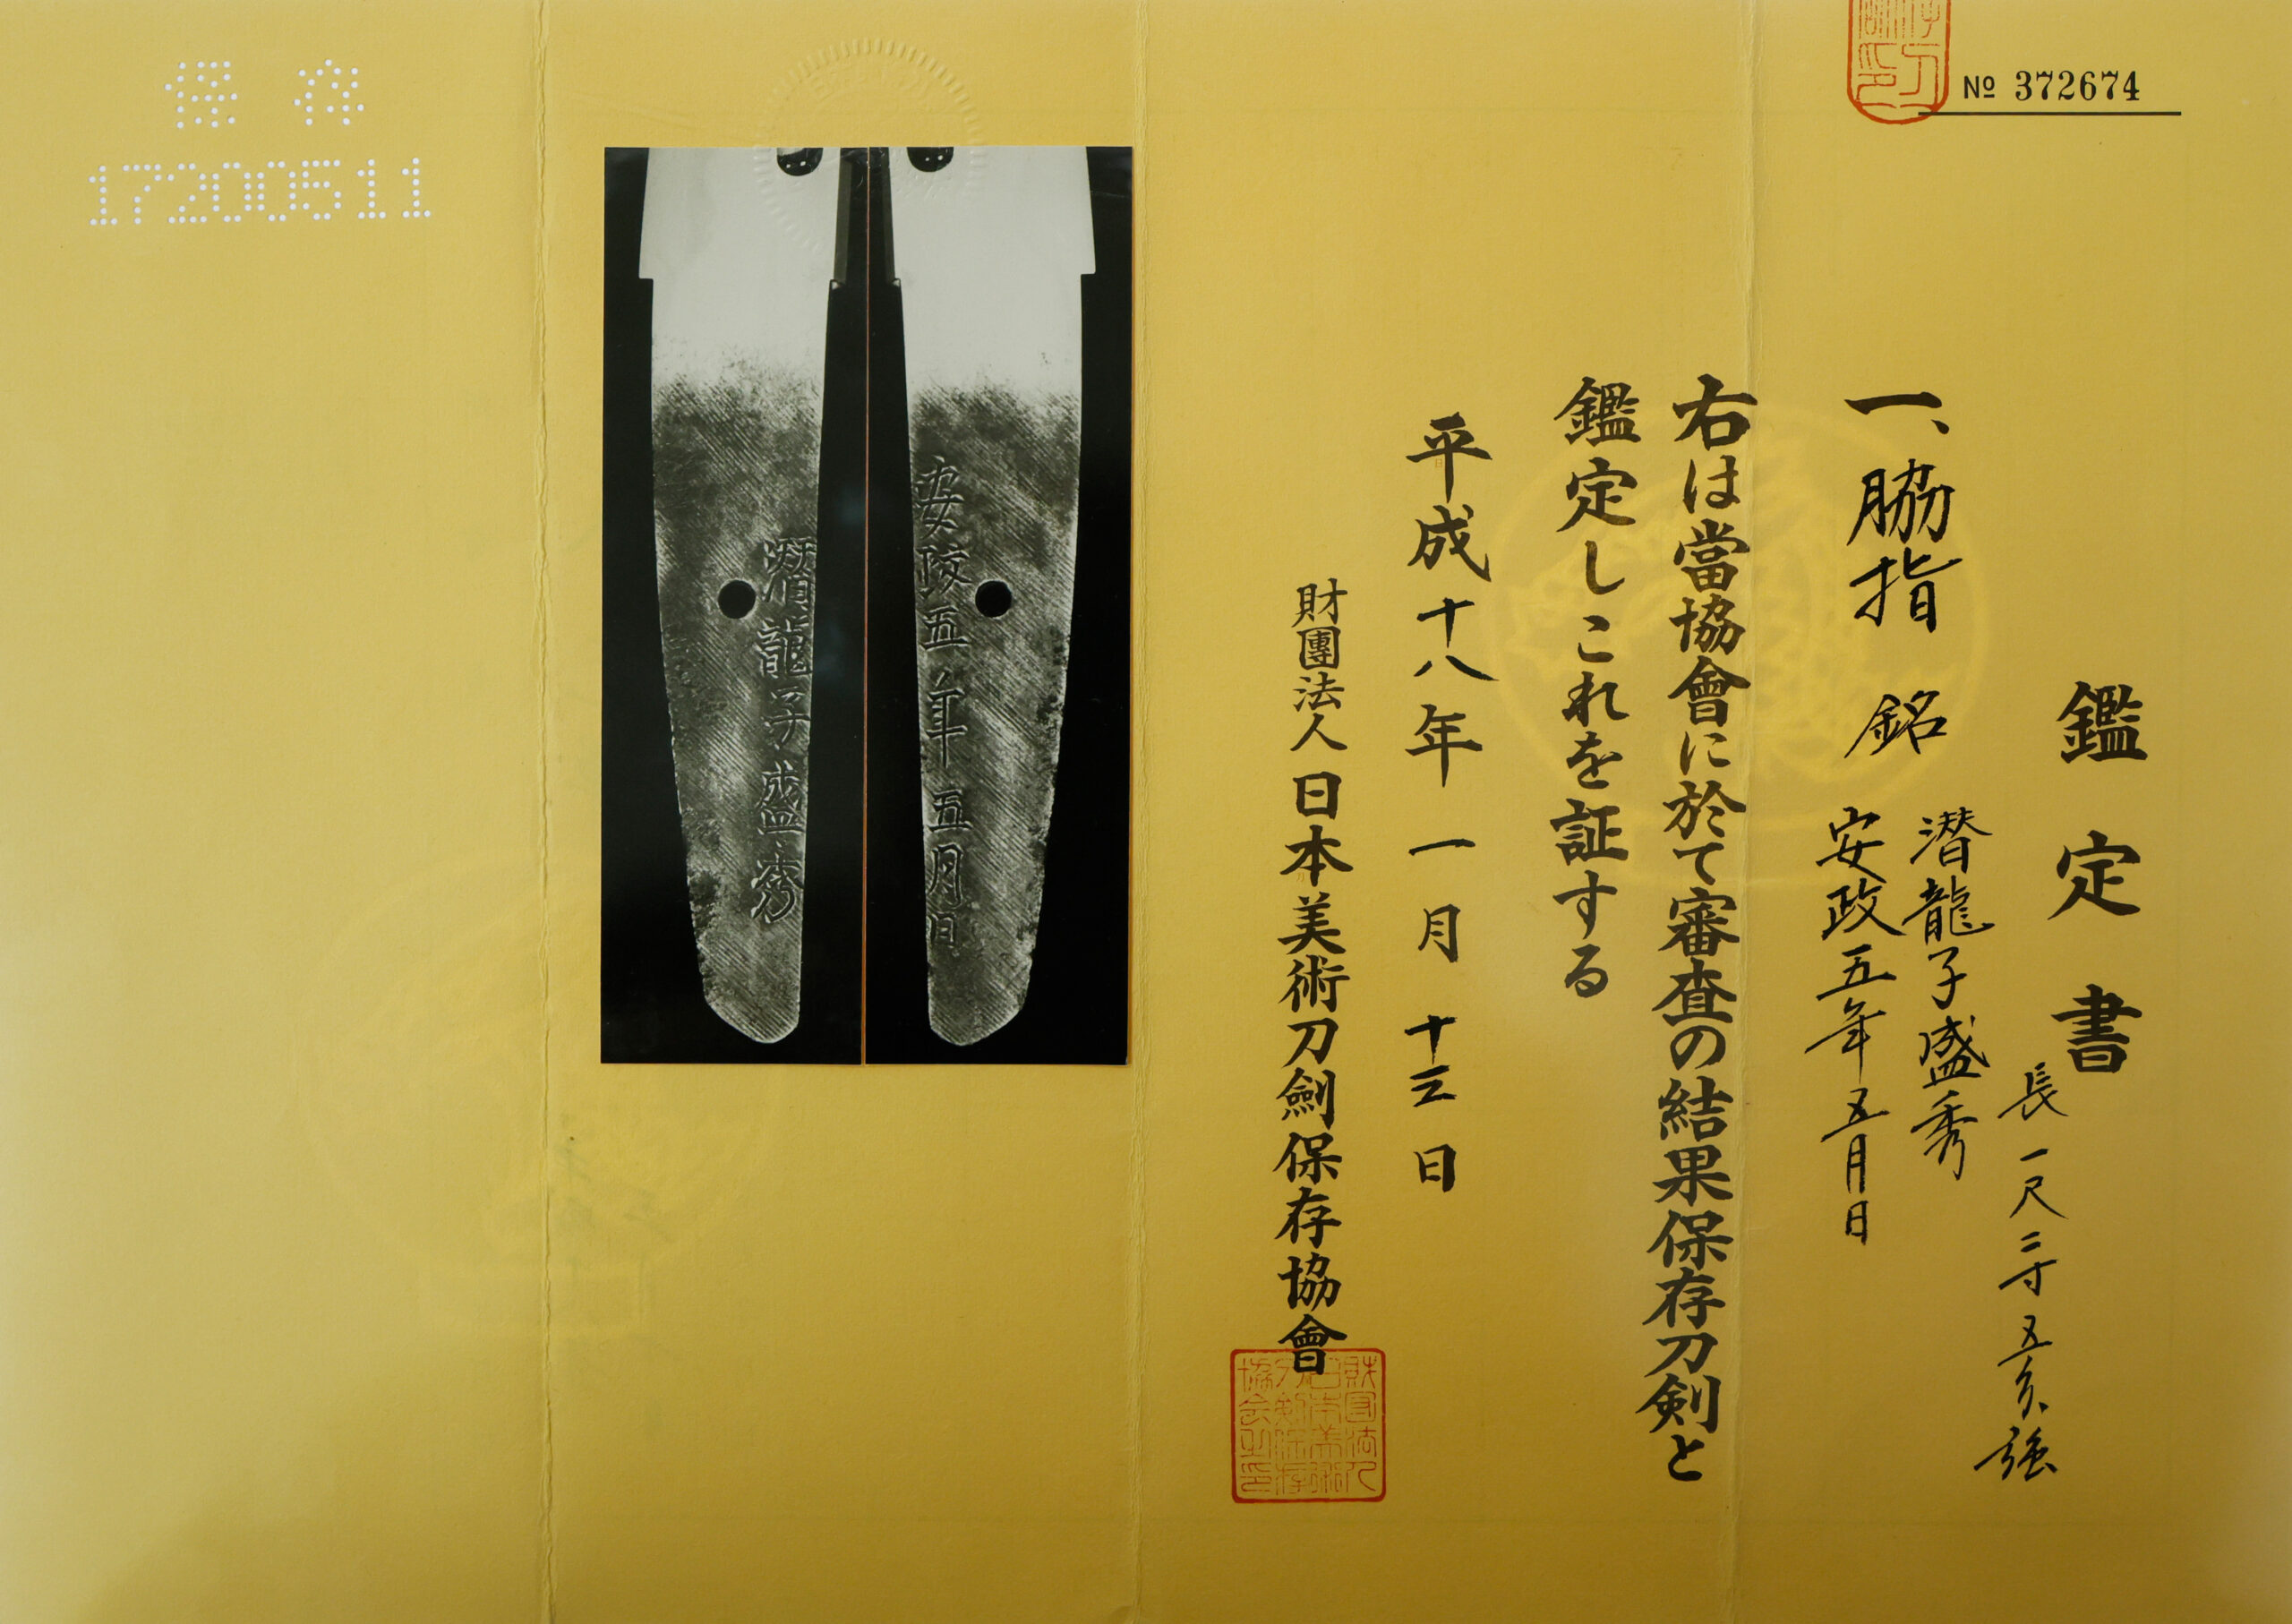 No 372674
鑑定書
長一尺三寸五分強
一、脇指 銘 潜龍子盛秀
安政五年五月日
右は當協會に於て審査の結果保存刀剣と
鑑定しこれを証する
平成十八年一月十三日
財團法人日本美術刀劍保存協會
安政五年五月日
潜龍子盛秀
保存
17200511